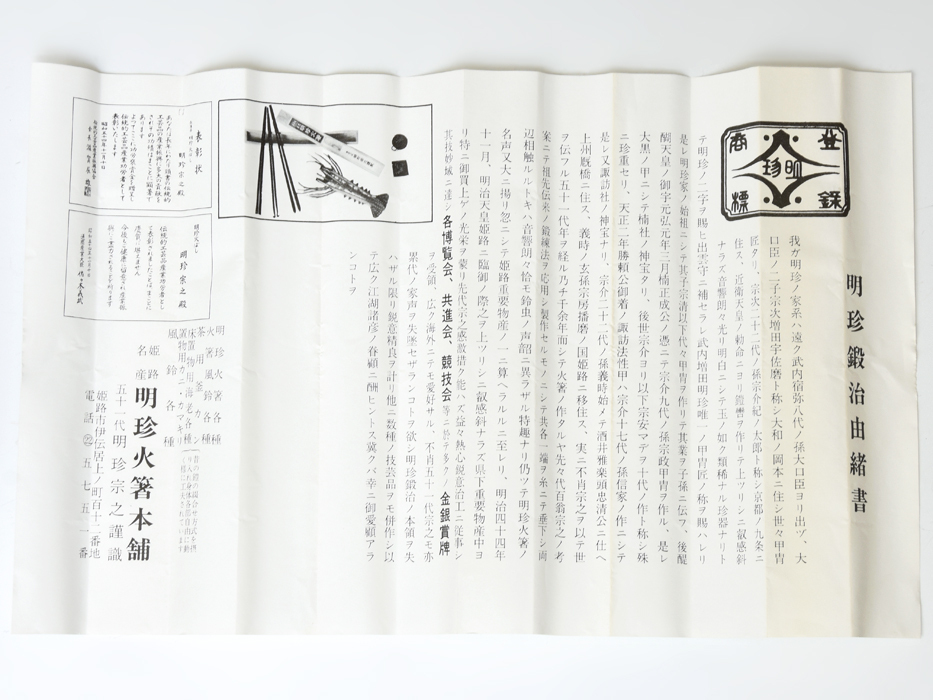 明珍鍛冶由緒書
登録
商標
明珍
我ガ明珍ノ家系ハ遠ク武内宿弥八代ノ孫大口臣ヨリ出ヅ、大
口臣ノ二子宗次増田宇佐磨ト称シ大和ノ岡本ニ住シ世々甲冑
匠タリ、宗次二十二代ノ孫宗介紀ノ太郎ト称シ京都ノ九条ニ
住ス、近衛天皇ノ勅命ニヨリ鎧轡ヲ作リテ上ツリシニ叡感斜
ナラズ音響朗々光リ明白ニシテ玉ノ如ク類稀ナル珍器ナリト
テ明珍ノ二字ヲ賜ヒ出雲守ニ補セラレ武内増田明珍唯一ノ甲冑匠ノ称ヲ賜ハレリ
是レ明珍家ノ始祖ニシテ其子宗清以下代々甲冑ヲ作リテ其業ヲ子孫ニ伝フ、後醍
醐天皇ノ御宇元弘元年三月楠正成公ノ憑ニテ宗介九代ノ孫宗政甲冑ヲ作ル、是レ
大黒ノ甲ニシテ楠社ノ神宝タリ、後世宗介ヨリ以下宗安マデヲ十代ノ作ト称シ殊
ニ珍重セリ、天正二年勝頼公御着ノ諏訪法性甲ハ宗介十七代ノ孫信家ノ作ニシテ
是レ又諏訪社ノ神宝ナリ、宗介二十二代ノ孫義時始メテ酒井雅楽頭忠清公ニ仕ヘ
上州厩橋ニ住ス、義時ノ玄孫宗房播磨ノ国姫路ニ移住ス、実ニ不肖宗之ヲ以テ世
ヲ伝フル五十一代年ヲ経ル乃チ千余年而シテ火箸ノ作タルヤ先々代百翁宗之ノ考
案ニテ祖先伝来ノ鍛練法ヲ応用シ製作セルモノニシテ共各一端ヲ糸ニテ垂下シ両
辺相触ルルトキハ音響朗々恰モ鈴虫ノ声韶ニ異ラザル特趣ナリ仍ツテ明珍火箸ノ
名声又大ニ揚リ忽ニシテ姫路重要物産ノ一ニ算ヘラルルニ至レリ、明治四十四年
十一月、明治天皇姫路ニ臨御ノ際之ヲ上ツリシニ叡感斜ナラズ県下重要物産中ヨ
リ特ニ御買上ゲノ光栄ヲ蒙リ先代宗之感激措ク能ハズ益々熱心鋭意治工ニ従事シ
其技妙域ニ達シ各博覧会、共進会、競技会等ニ於テ多クノ金銀賞牌
ヲ受領、広ク海外ニモ愛好サル、不肖五十一代宗之モ亦
累代ノ家声ヲ失墜セザランコトヲ欲シ明珍鍛冶ノ本領ヲ失
ハザル限リ鋭意精良ヲ計リ他ニ数種ノ技芸品ヲモ併作シ以
テ広ク江湖諸彦ノ眷顧ニ酬ヒントス冀クバ幸ニ御愛顧アラ
ンコトヲ
表彰状
明珍宗之殿
明珍宗之殿
明珍火箸各種
茶用釜カン
風鈴各種
姫路
名産
明珍火箸本舗
五十一代明珍宗之謹識
姫路市伊伝居上ノ町百十二番地
電話㉒五七五一番